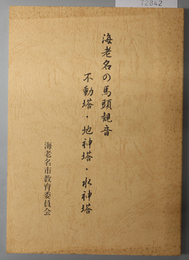 海老名の馬頭観音
不動塔・地神塔・水神塔
海老名市教育委員会